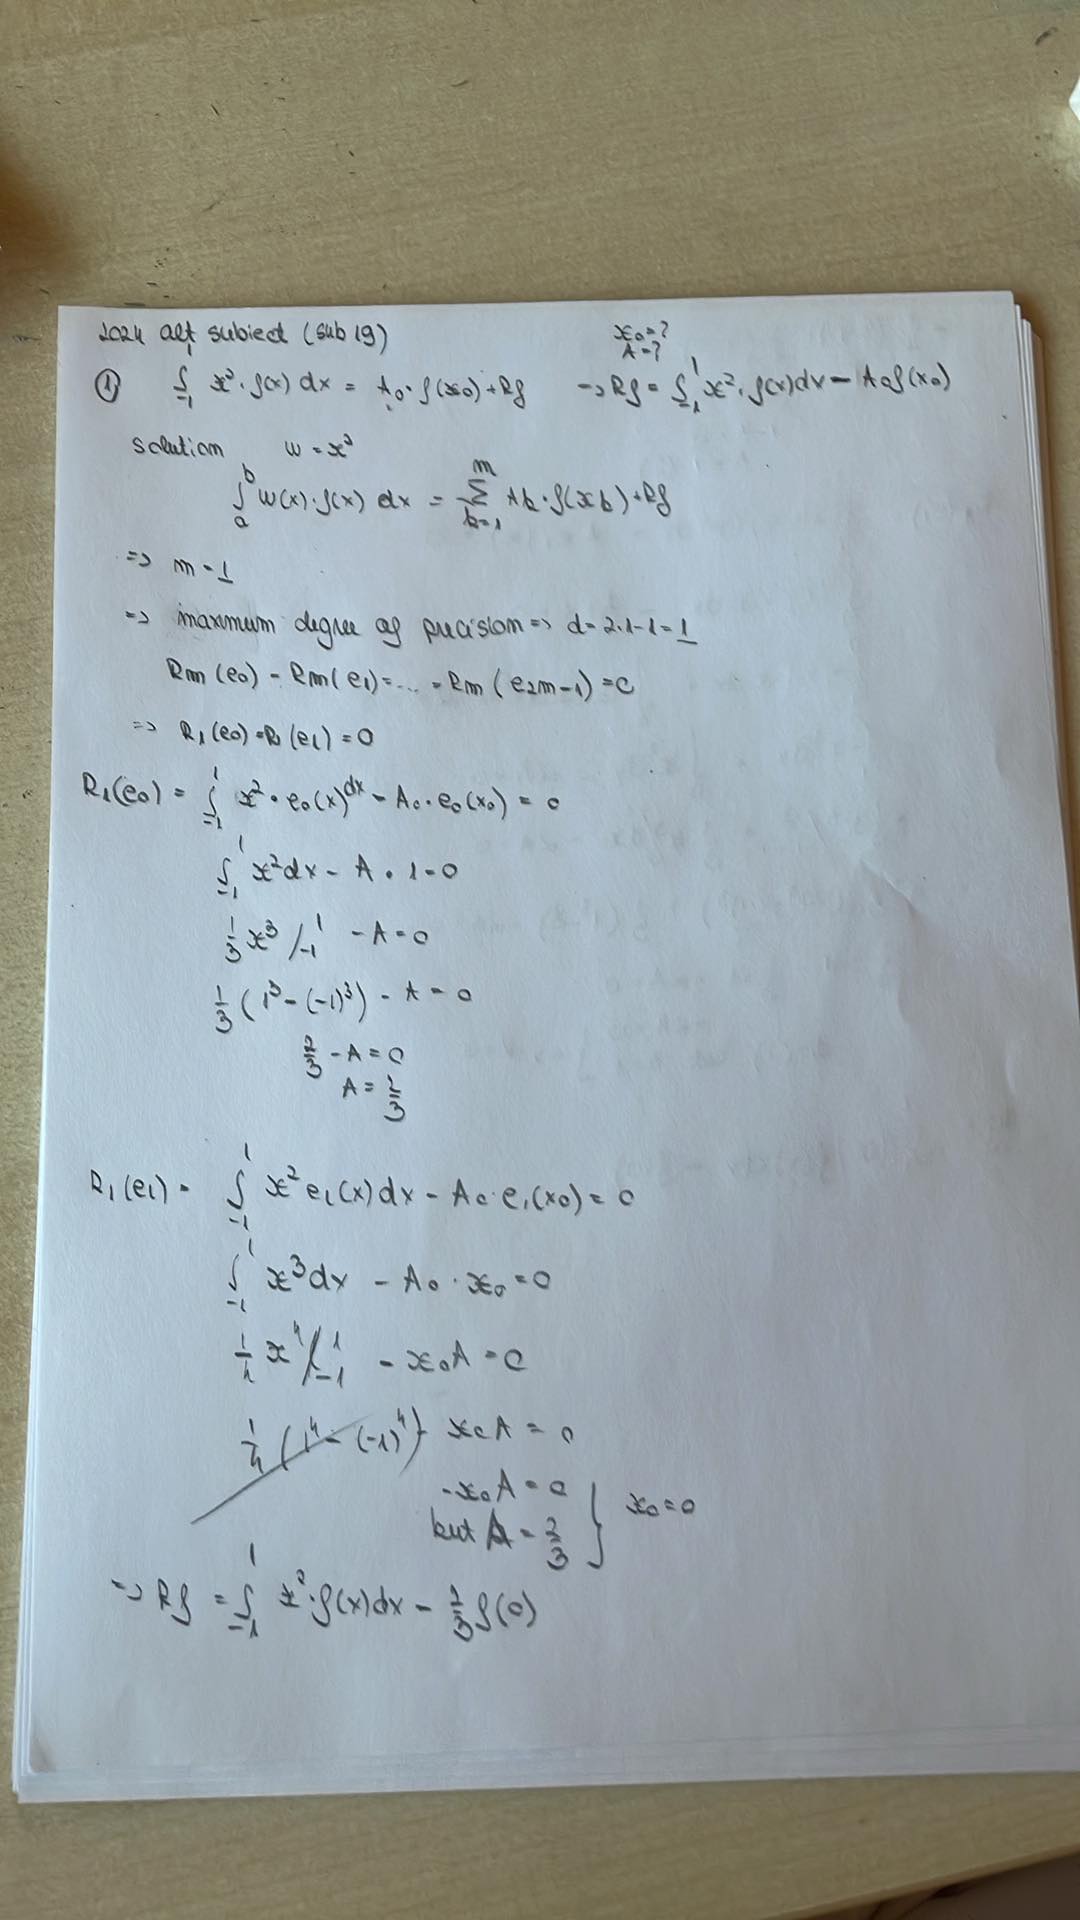 2024 alt subiect (sub 19)
x₀ = ?
A = ?
① ∫₋₁¹ x² · f(x) dx = A₀ · f(x₀) + Rf => Rf = ∫₋₁¹ x² · f(x) dx - A₀ f(x₀)
solution w = x²
∫ₐᵇ w(x) · f(x) dx = Σₖ₌₁ᵐ Ak · f(xk) + Rf
=> m = 1
=> maximum degree of precision => d = 2·1-1 = 1
Rm(e₀) = Rm(e₁) = ... = Rm(e₂ₘ₋₁) = 0
=> R₁(e₀) = R₁(e₁) = 0
R₁(e₀) = ∫₋₁¹ x² · e₀(x) dx - A₀ · e₀(x₀) = 0
∫₋₁¹ x² dx - A · 1 = 0
1/3 x³ /₋₁¹ - A = 0
1/3 (1³ - (-1)³) - A = 0
2/3 - A = 0
A = 2/3
R₁(e₁) = ∫₋₁¹ x² e₁(x) dx - A₀ · e₁(x₀) = 0
∫₋₁¹ x³ dx - A₀ · x₀ = 0
1/4 x⁴ /₋₁¹ - x₀A = 0
1/4 (1⁴ - (-1)⁴) - x₀A = 0
-x₀A = 0
but A = 2/3 } x₀ = 0
=> Rf = ∫₋₁¹ x² · f(x) dx - 2/3 f(0)